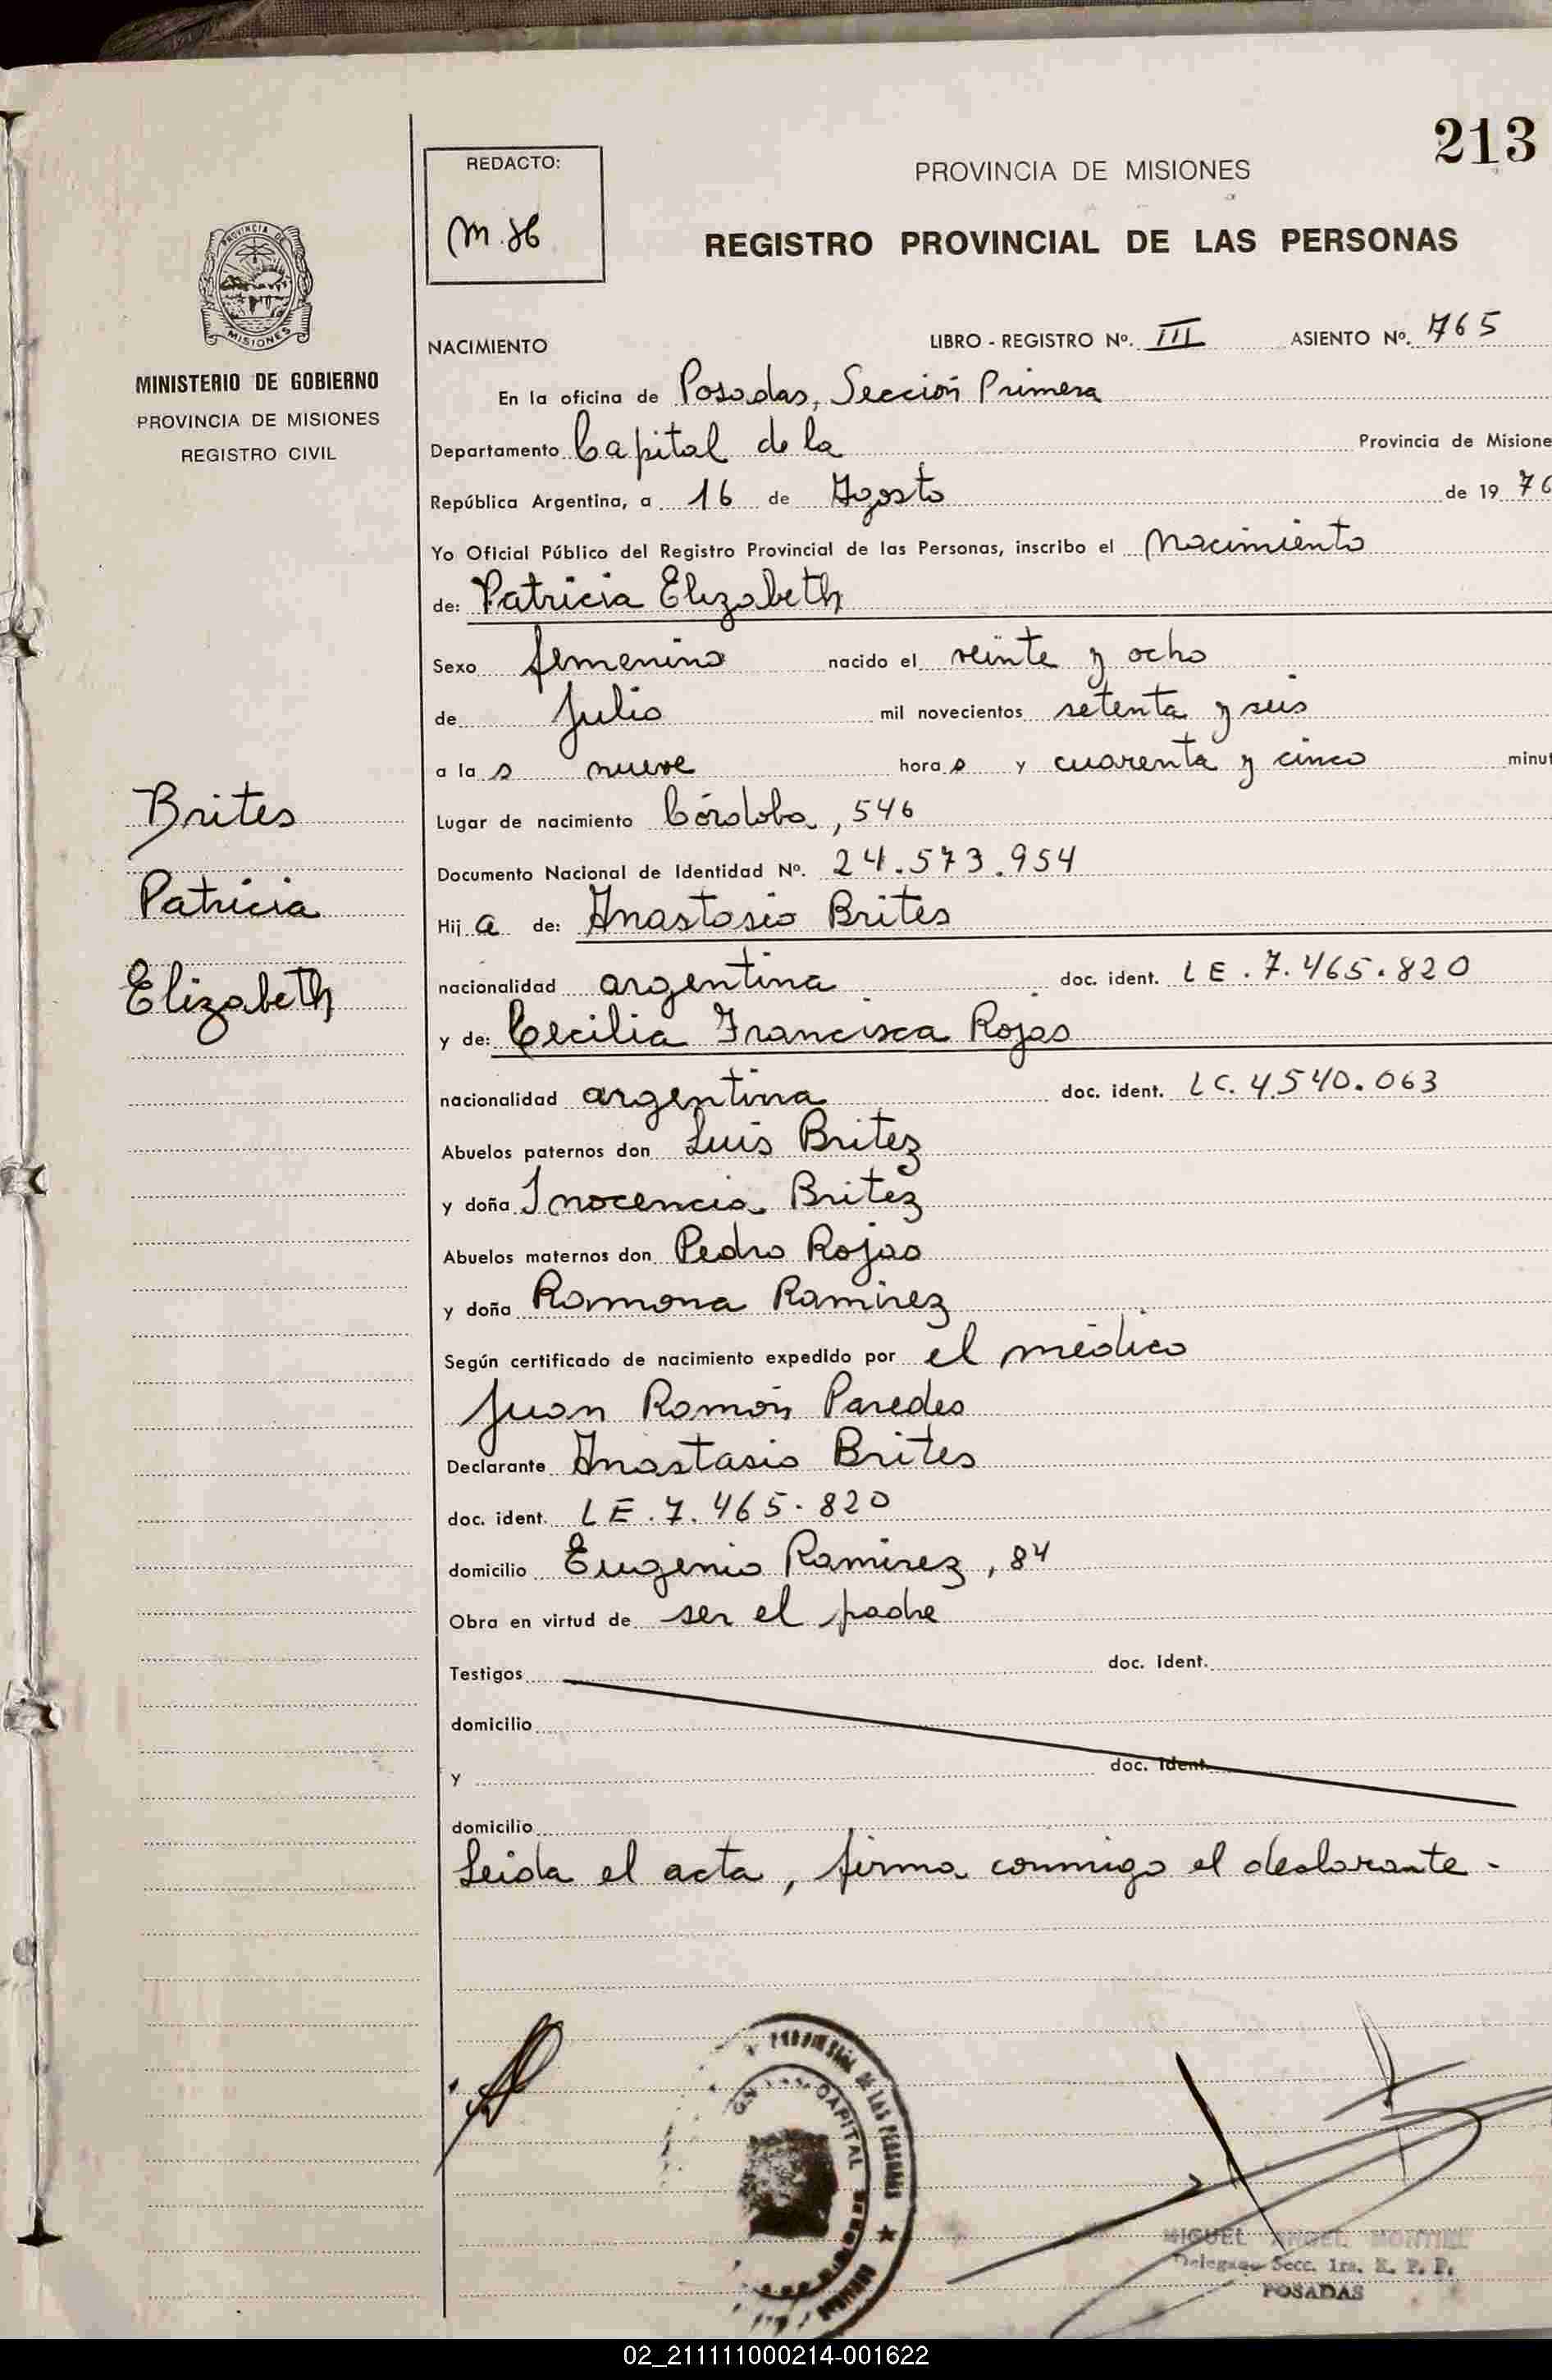 213
REDACTO:
PROVINCIA DE MISIONES
REGISTRO PROVINCIAL DE LAS PERSONAS
PROVINCIA DE
MISIONES
MINISTERIO DE GOBIERNO
PROVINCIA DE MISIONES
REGISTRO CIVIL
Brites
Patricia
Elizabeth
NACIMIENTO LIBRO - REGISTRO Nº. III ASIENTO Nº. 765
En la oficina de Posadas, Sección Primera
Departamento Capital de la Provincia de Misione
República Argentina, a 16 de Agosto de 19 76
Yo Oficial Público del Registro Provincial de las Personas, inscribo el Nacimiento
de: Patricia Elizabeth
Sexo femenino nacido el veinte y ocho
de Julio mil novecientos setenta y seis
a la s nueve hora s y cuarenta y cinco minut
Lugar de nacimiento Córdoba, 546
Documento Nacional de Identidad Nº. 24.573.954
Hij a de: Anastasio Brites
nacionalidad argentina doc. ident. LE. 7.465.820
y de: Cecilia Francisca Rojas
nacionalidad argentina doc. ident. LC. 4.540.063
Abuelos paternos don Luis Britez
y doña Inocencia Britez
Abuelos maternos don Pedro Rojas
y doña Ramona Ramirez
Según certificado de nacimiento expedido por el médico
Juan Ramón Paredes
Declarante Anastasio Brites
doc. ident. LE. 7.465.820
domicilio Eugenio Ramirez, 84
Obra en virtud de ser el padre
Testigos doc. ident.
domicilio
y doc. ident.
domicilio
Leida el acta, firma conmigo el declarante.
PROVINCIAL DE LAS PERSONAS
CAPITAL
MIGUEL ANGEL MONTIEL
Delegado Secc. 1ra. R. P. P.
POSADAS
02_211111000214-001622